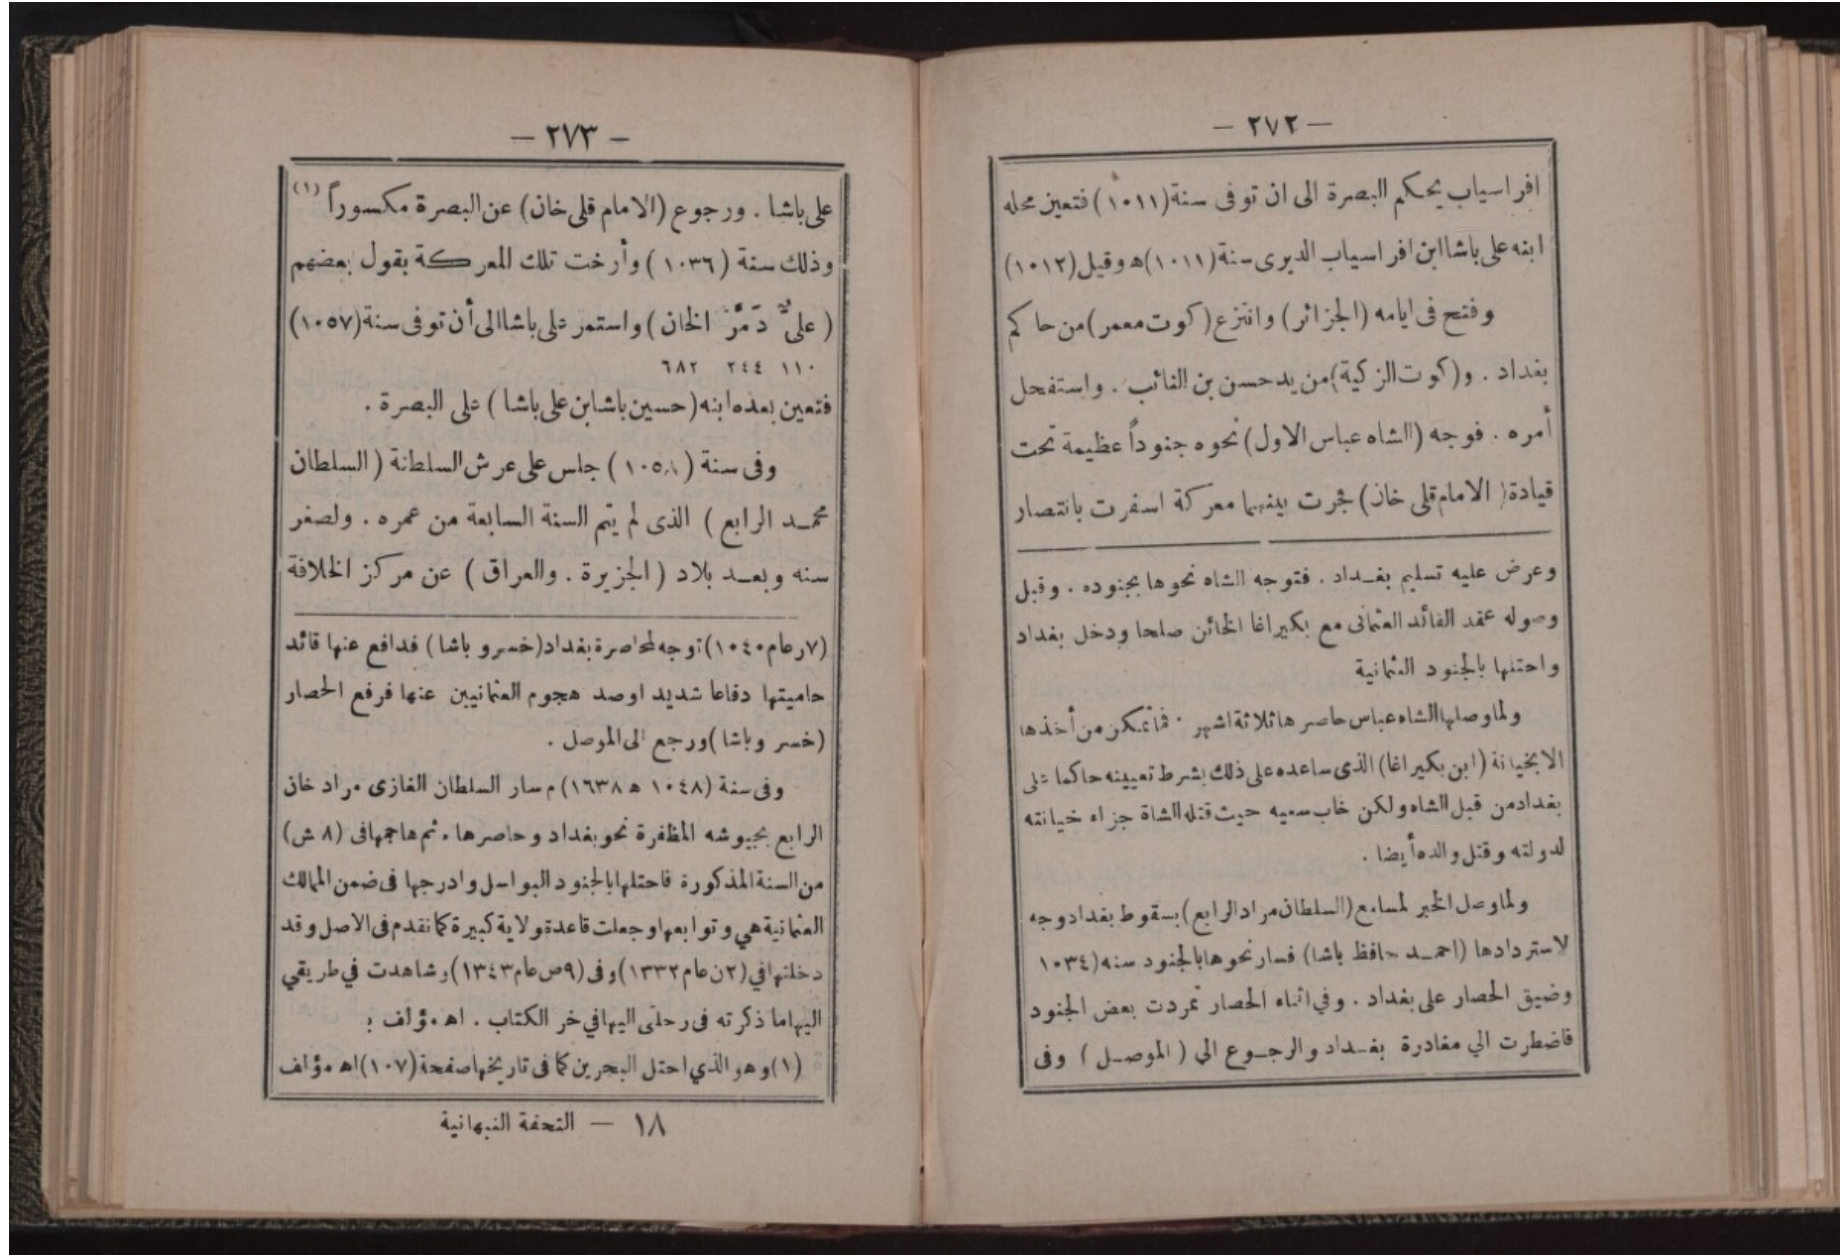 — ٢٧٢ —
افراسياب يحكم البصرة الى ان توفى سنة (١٠١١) فتعين محله
ابنه على باشا ابن افراسياب الديرى سنة (١٠١١) ه وقيل (١٠١٢)
وفتح فى ايامه (الجزائر) وانتزع (كوت معمر) من حاكم
بغداد . و(كوت الزكية) من يد حسن بن الغائب . واستفحل
أمره . فوجه (الشاه عباس الاول) نحوه جنوداً عظيمة تحت
قيادة (الامام قلى خان) فجرت بينهما معركة اسفرت بانتصار
وعرض عليه تسليم بغداد . فتوجه الشاه نحوها بجنوده . وقبل
وصوله عقد القائد العثمانى مع بكيراغا الخائن صلحا ودخل بغداد
واحتلها بالجنود العثمانية
ولما وصلها الشاه عباس حاصرها ثلاثة اشهر . فما تمكن من أخذها
الا بخيانة (ابن بكيراغا) الذى ساعده على ذلك بشرط تعيينه حاكما على
بغداد من قبل الشاه ولكن خاب سعيه حيث قتله الشاة جزاء خيانته
لدولته وقتل والده أيضا .
ولما وصل الخبر لمسامع (السلطان مراد الرابع) بسقوط بغداد وجه
لاستردادها (احمد حافظ باشا) فسار نحوها بالجنود سنه (١٠٣٤
وضيق الحصار على بغداد . وفي اثناء الحصار تمردت بعض الجنود
فاضطرت الي مغادرة بغداد والرجوع الي (الموصل) وفى
— ٢٧٣ —
على باشا . ورجوع (الامام قلى خان) عن البصرة مكسوراً (١)
وذلك سنة (١٠٣٦) وأرخت تلك المعركة بقول بعضهم
(علىٌّ دَمَّرَ الخان) واستمر على باشا الى أن توفى سنة (١٠٥٧)
١١٠ ٢٤٤ ٦٨٢
فتعين بعده ابنه (حسين باشا بن على باشا) على البصرة .
وفى سنة (١٠٥٨) جلس على عرش السلطانة (السلطان
محمد الرابع) الذى لم يتم السنة السابعة من عمره . ولصغر
سنه وبعد بلاد (الجزيرة . والعراق) عن مركز الخلافة
(٧ر عام ١٠٤٠) توجه لمحاصرة بغداد (خسرو باشا) فدافع عنها قائد
حاميتها دفاعا شديد اوصد هجوم العثمانيين عنها فرفع الحصار
(خسر وباشا) ورجع الى الموصل .
وفى سنة (١٠٤٨ ه ١٦٣٨) م سار السلطان الغازى مراد خان
الرابع بجيوشه المظفرة نحو بغداد وحاصرها . ثم هاجمها فى (٨ ش)
من السنة المذكورة فاحتلها بالجنود البواسل وادرجها فى ضمن الممالك
العثمانية هي وتوابعها وجعلت قاعدة ولاية كبيرة كما نقدم فى الاصل وقد
دخلتها في (٢ ن عام ١٣٣٢) وفى (٩ ص عام ١٣٤٣) وشاهدت في طريقي
اليها ما ذكرته فى رحلتى اليها في خر الكتاب . اه مؤلف
(١) وهو الذي احتل البحرين كما فى تاريخها صفحة (١٠٧) اه مؤلف
١٨ — التحفة النبهانية